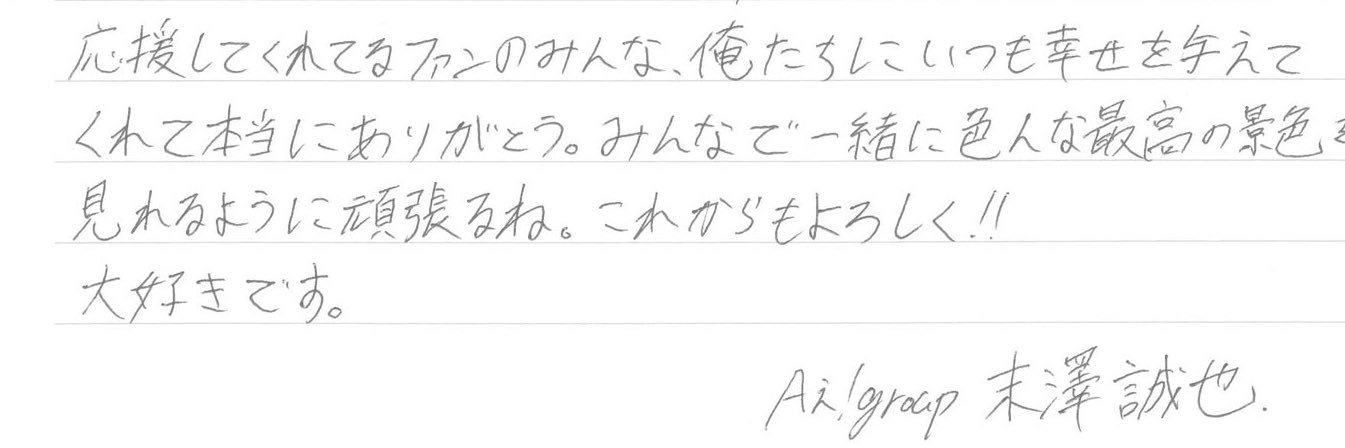 応援してくれてるファンのみんな、俺たちにいつも幸せを与えて
くれて本当にありがとう。みんなで一緒に色んな最高の景色を
見れるように頑張るね。これからもよろしく!!
大好きです。
Aぇ!group 末澤誠也.